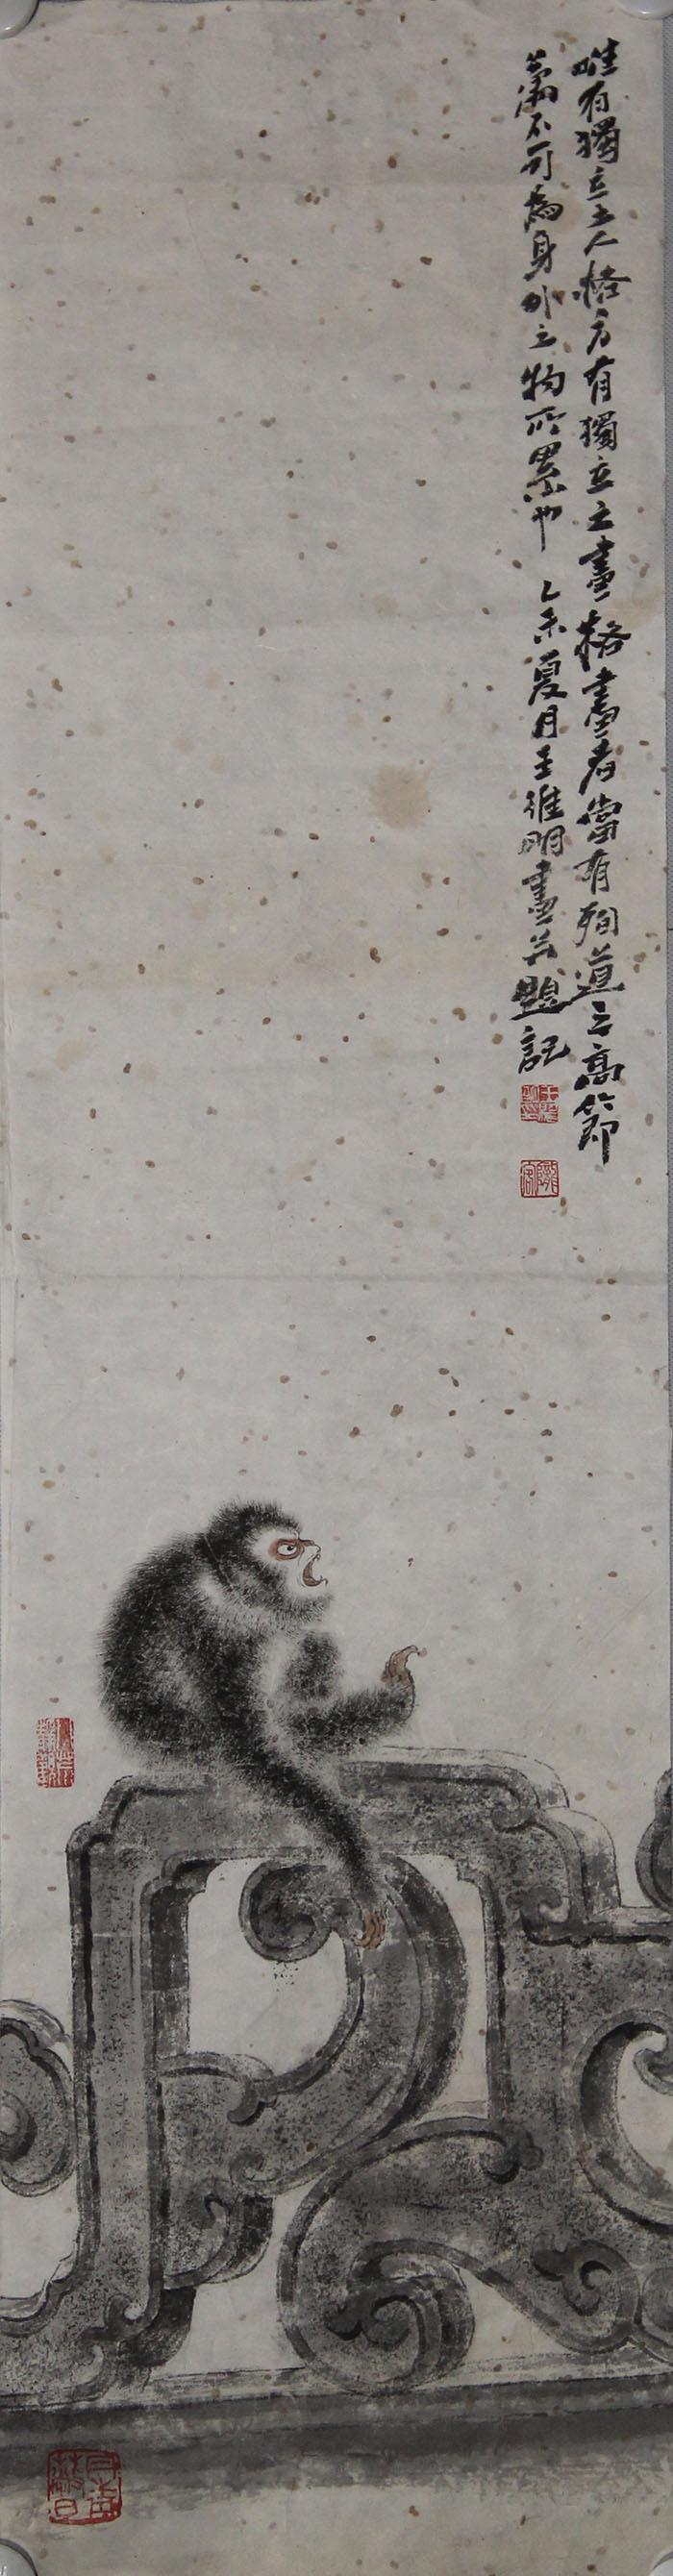 唯有獨立之人格方有獨立之畫格畫者當有殉道之高節
萬不可為身外之物所累也 乙未夏月王維明畫並題記